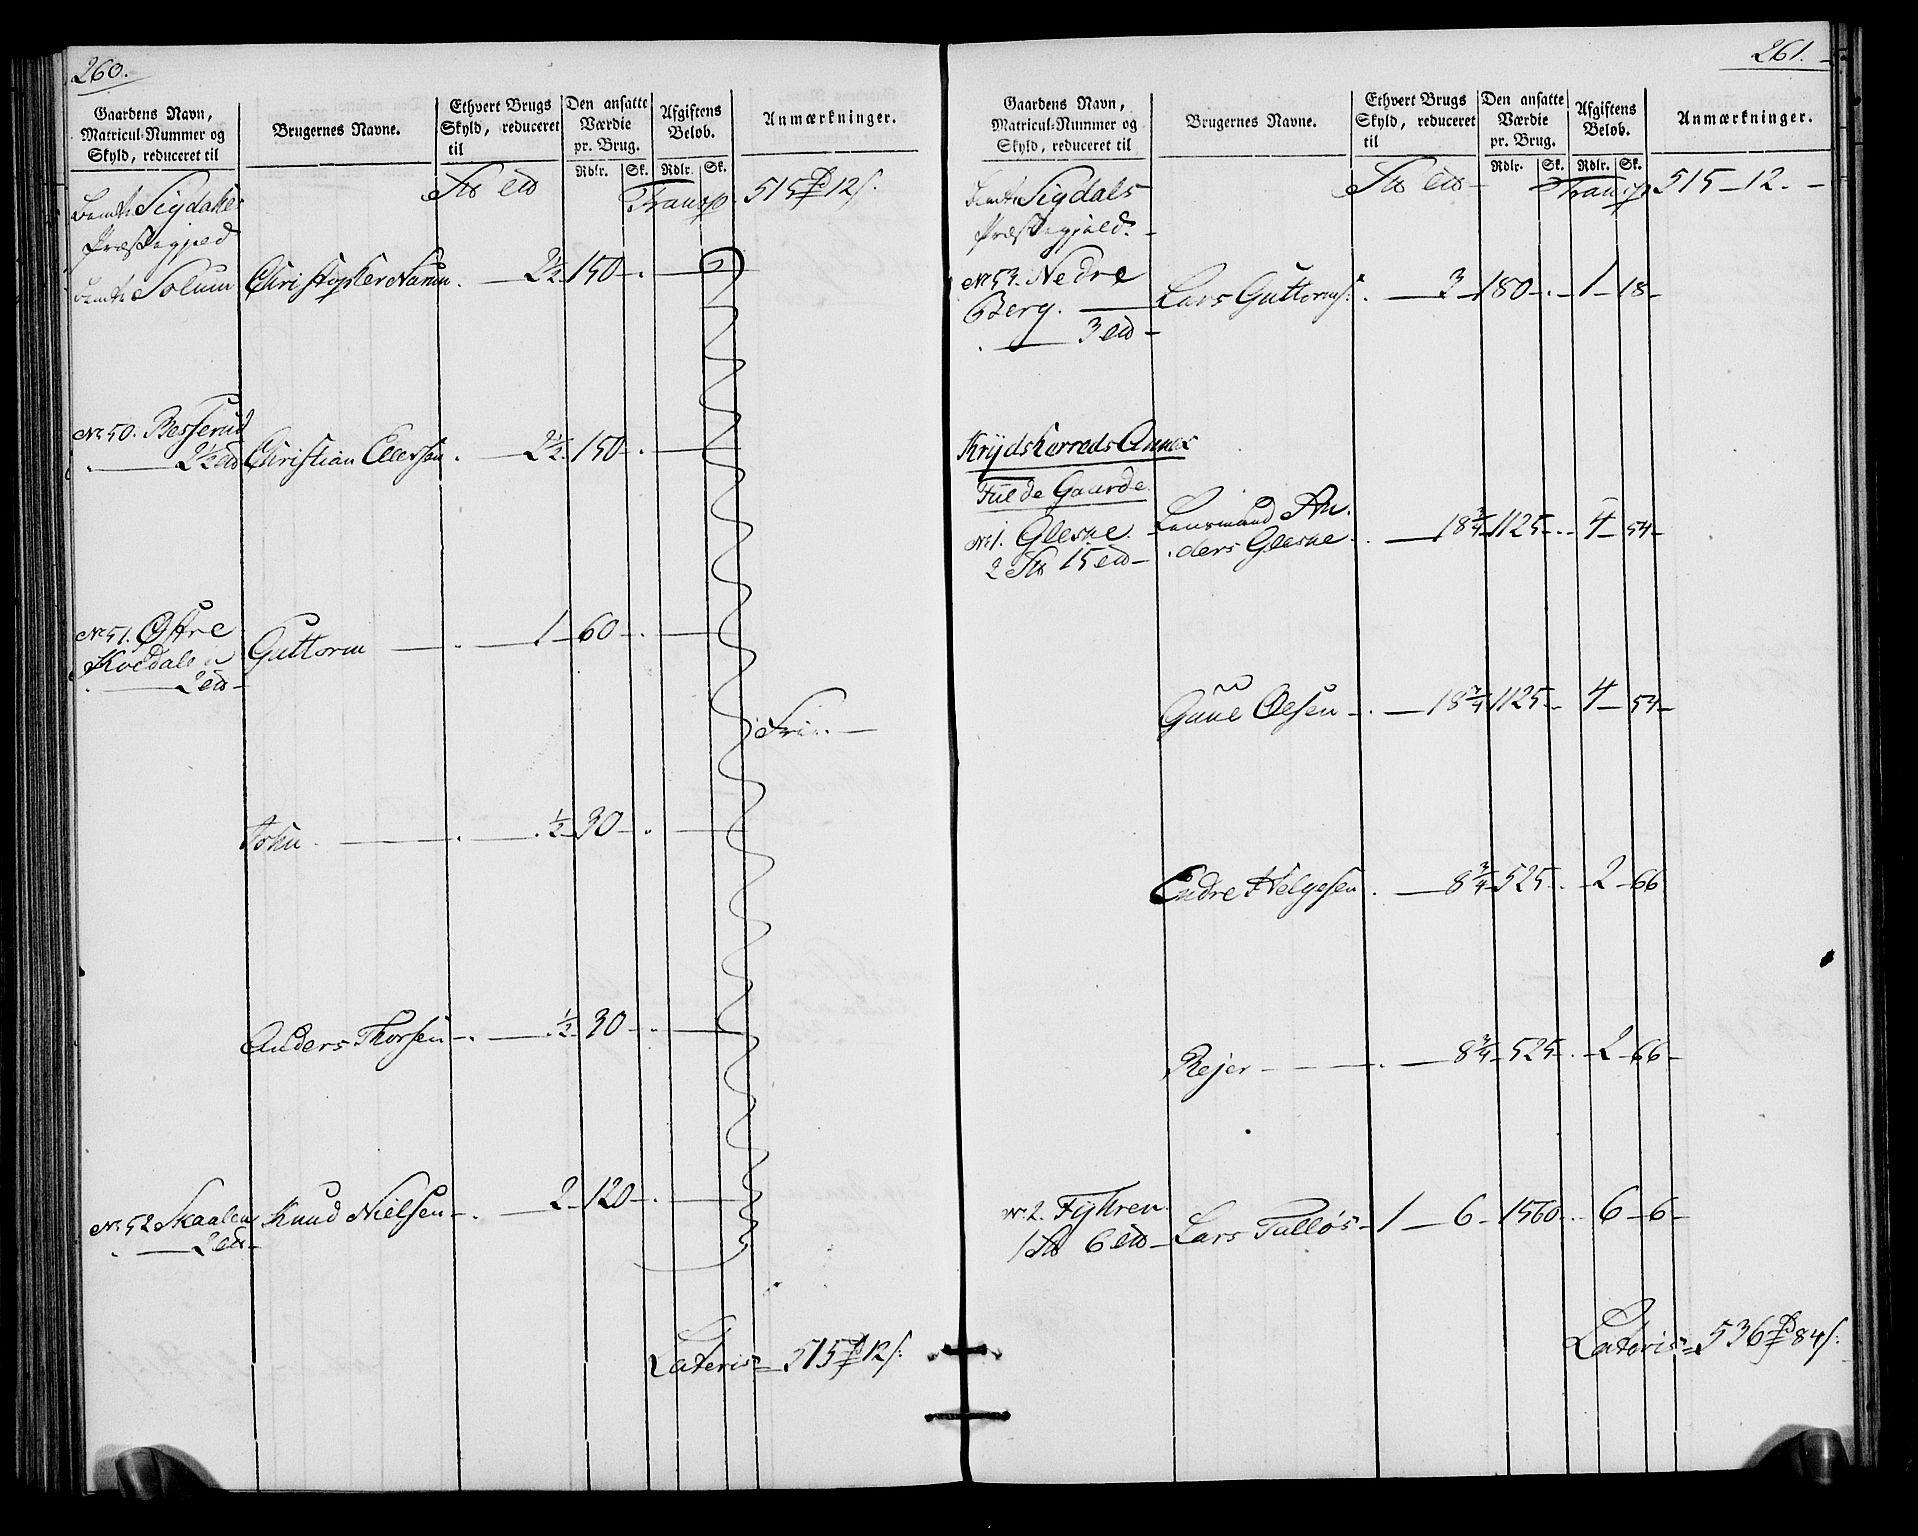 260.
Gaardens Navn,
Matricul-Nummer og
Skyld, reduceret til
Brugernes Navne.
Ethvert Brugs
Skyld, reduceret
til
Den ansatte
Værdie
pr. Brug.
Afgiftens
Beløb.
Anmærkninger.
Rdlr. Sk. Rdlr. Sk.
Transp 515 12 s.
Sigdals
Præstegjeld
Solum Christopher — 2½ 150 — . —
No 50. Besserud
2½ Christian Ellersen . — 2½ 150 — . —
No 51. Østre
Kvedalen Guttorm — . — 1 — 60 — . —
2
Frie. —
John. — . — ½ — 30 — . —
Anders Thorsen — . — ½ — 30 — . —
No. 52 Skaalen Knud Nielsen — . — 2 — 120 — . —
2
Lateris = 515 12 s.
261.
Gaardens Navn,
Matricul-Nummer og
Skyld, reduceret til
Brugernes Navne.
Ethvert Brugs
Skyld, reduceret
til
Den ansatte
Værdie
pr. Brug.
Afgiftens
Beløb.
Anmærkninger.
Rdlr. Sk. Rdlr. Sk.
Transp 515 — 12. —
Sigdals
Præstegjeld. —
No 53. Nedre
Berg. — Lars Guttorms: . — 3 — 180 — . — 1 — 18 —
3
Krydsherreds Annex
Fulde Gaarde
No 1. Glesne. Lensmand An-
2 15 ders Glesne . — 18¾ 1125 — . — 4 — 54 —
Olsen — . — 18¾ 1125 — . 4 — 54 —
Endre Helgesen . — 8¾ 525 — . — 2 — 66
Rejer — . — 8¾ — 525 — . — 2 — 66 —
No. 2. Fyhren
1 6 Lars Tulløs — 1 — 6 — 1560 — . 6 — 6 —
Lateris = 536 84 s.